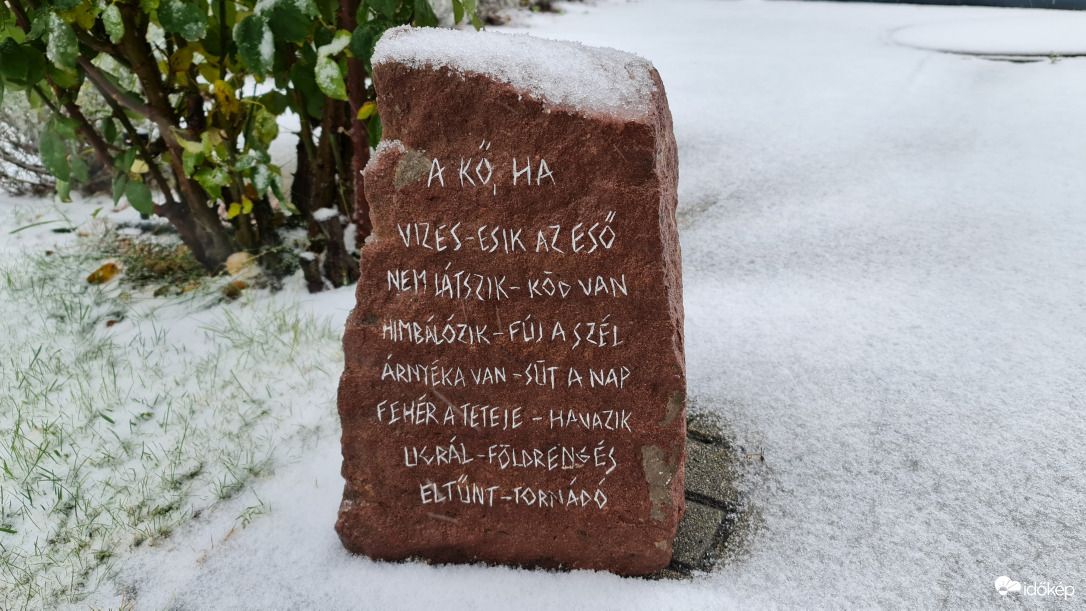 A KŐ, HA
VIZES-ESIK AZ ESŐ
NEM LÁTSZIK-KÖD VAN
HIMBÁLÓZIK-FÚJ A SZÉL
ÁRNYÉKA VAN-SÜT A NAP
FEHÉR A TETEJE - HAVAZIK
UGRÁL-FÖLDRENGÉS
ELTŰNT-TORNÁDÓ
időkép